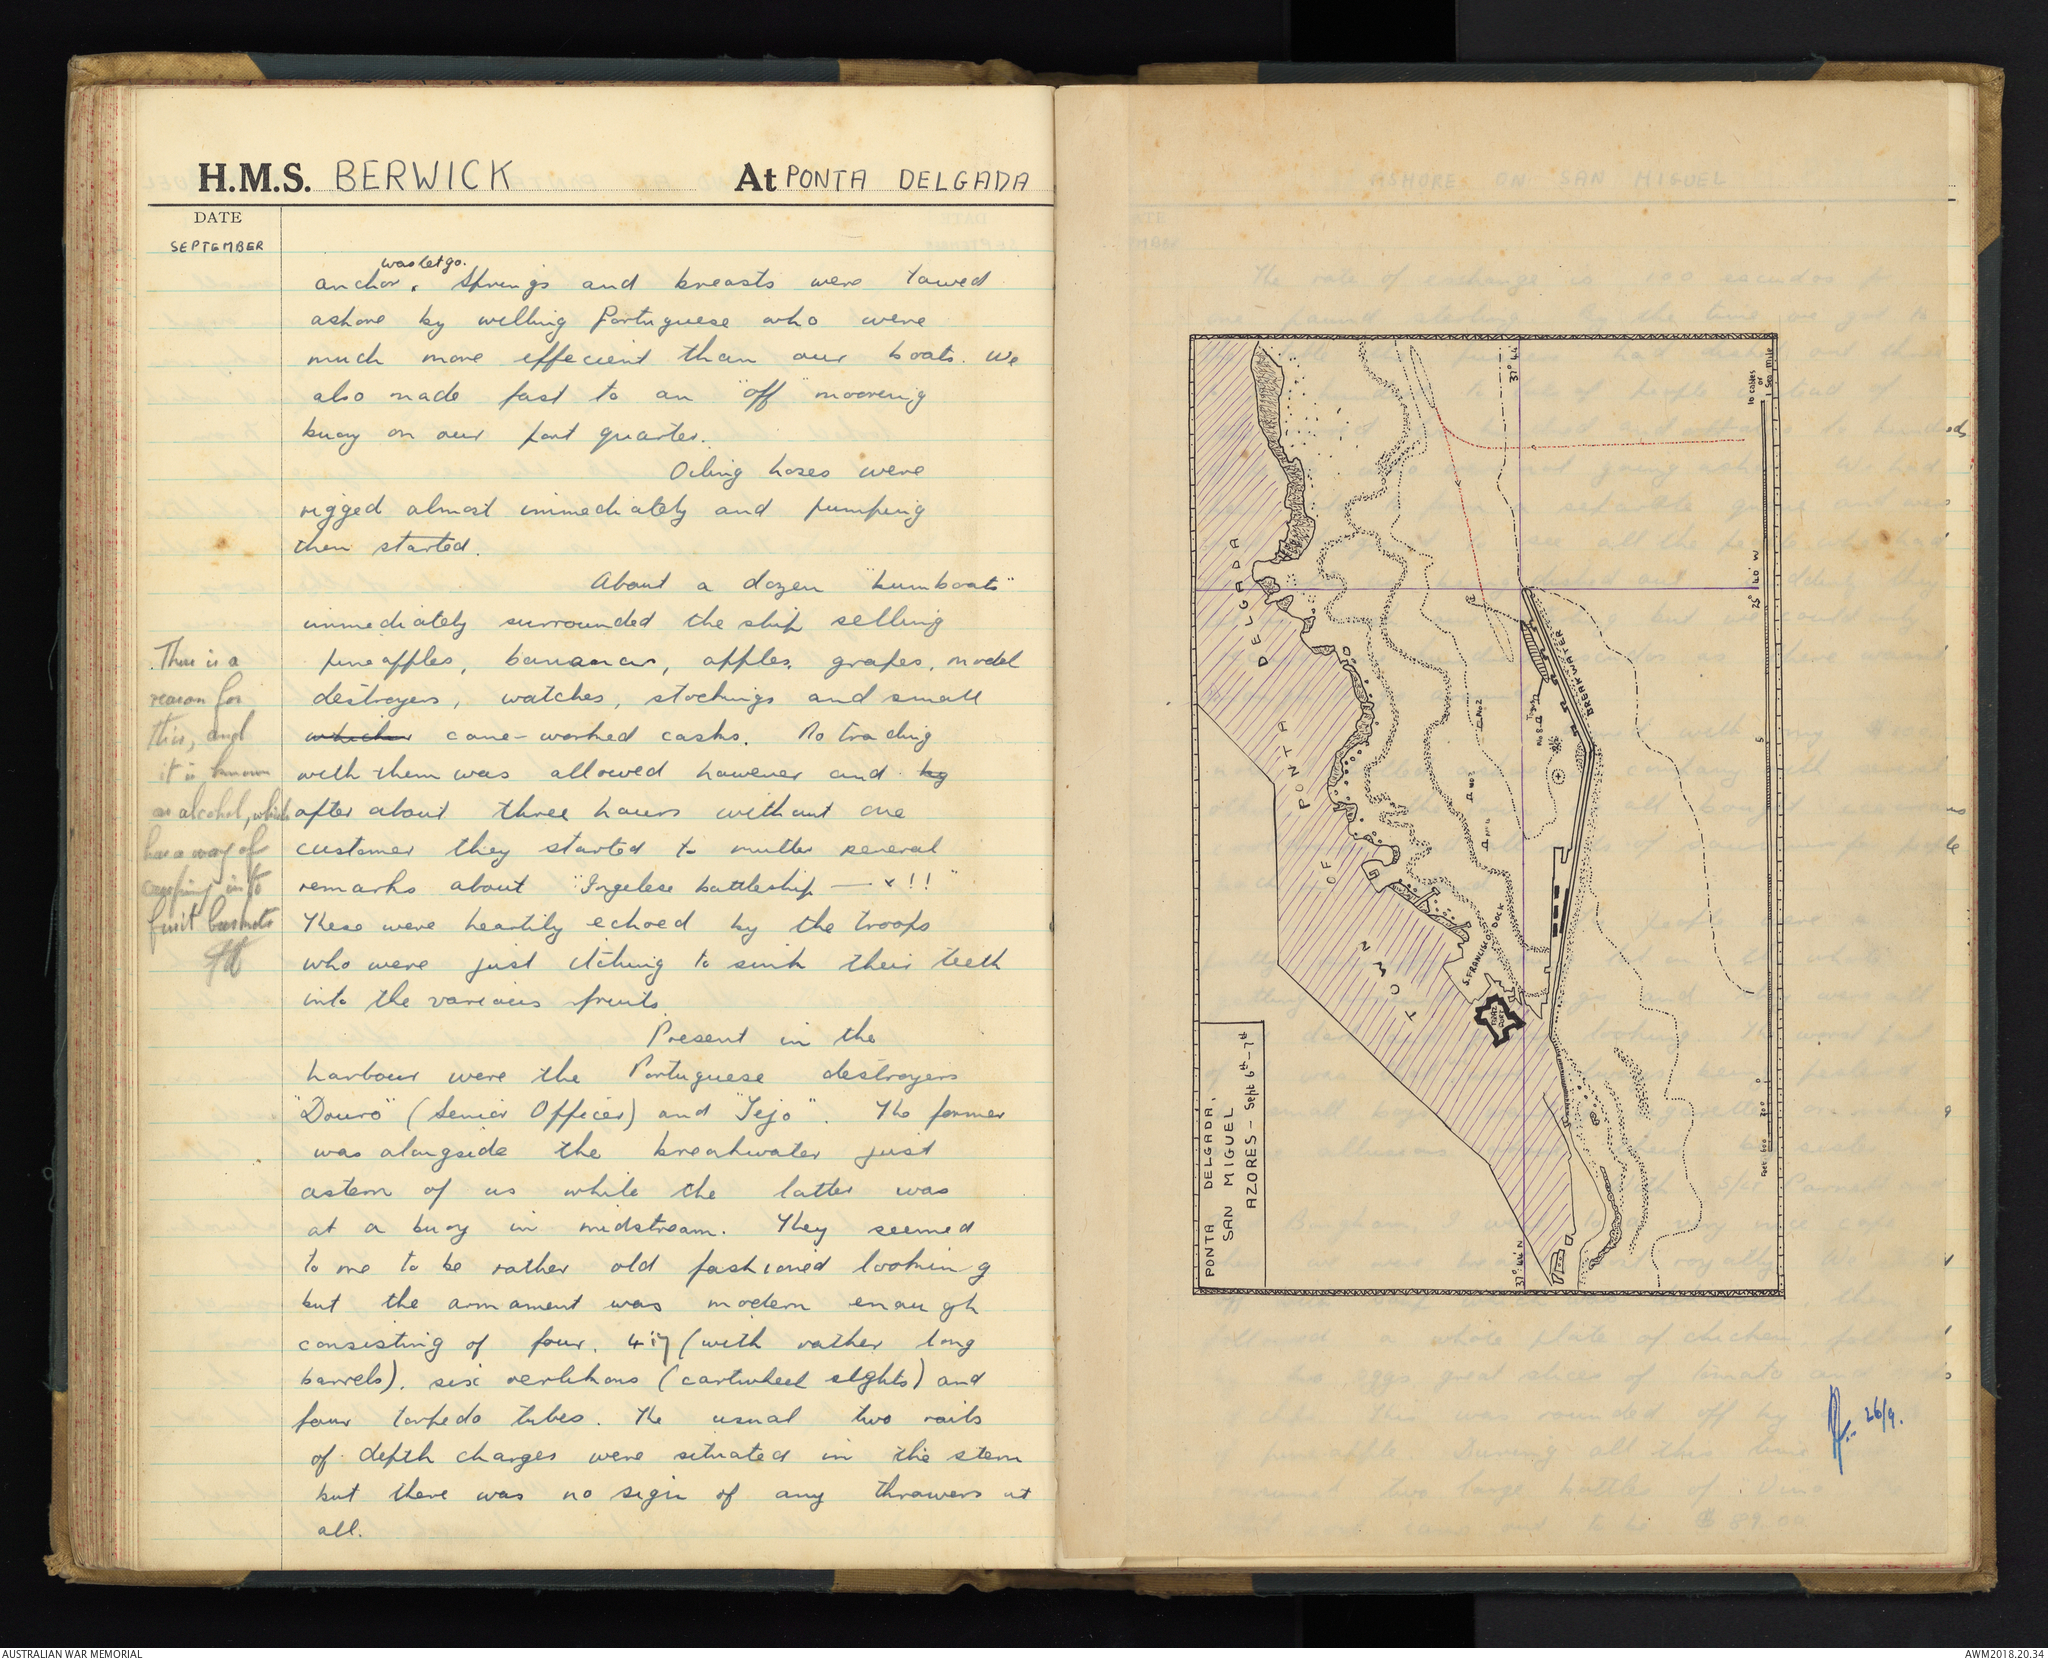 H.M.S. BERWICK At PONTA DELGADA
DATE
SEPTEMBER
was let go.
anchor. Springs and breasts were towed
ashore by willing Portuguese who were
much more effecient than our boats. We
also made fast to an "off" moorring
buoy on our port quarter.
Oiling hoses were
rigged almost immediately and pumping
then started.
About a dozen "bumboats"
immediately surrounded the ship selling
pineapples, bananas, apples, grapes, model
destroyers, watches, stockings and small
which cane-worked casks. No trading
with them was allowed however and by
after about three hours without one
customer they started to mutter several
remarks about "Ingelese battleship — x!!"
These were heartily echoed by the troops
who were just itching to sink their teeth
into the various fruits.
Present in the
harbour were the Portuguese destroyers
"Douro" (Senior Officer) and "Tejo". The former
was alongside the breakwater just
astern of us while the latter was
at a buoy in midstream. They seemed
to me to be rather old fashioned looking
but the armament was modern enough
consisting of four, 4"7 (with rather long
barrels), six oerlikons (cartwheel sights) and
four torpedo tubes. The usual two rails
of depth charges were situated in the stern
but there was no sign of any throwers at
all.
There is a
reason for
this, and
it is known
as alcohol, which
has a way of
creeping into
fruit baskets
PONTA DELGADA,
SAN MIGUEL
AZORES - Sept 6th - 7th
TOWN OF PONTA DELGADA
S. FRANCISCO DOCK
BREAKWATER
37° 44'
37° 44' N
25° 40' W
10 cables
or
1 Sea Mile
5
0
Feet 600
300
No 2
26/9.
AUSTRALIAN WAR MEMORIAL
AWM2018.20.34